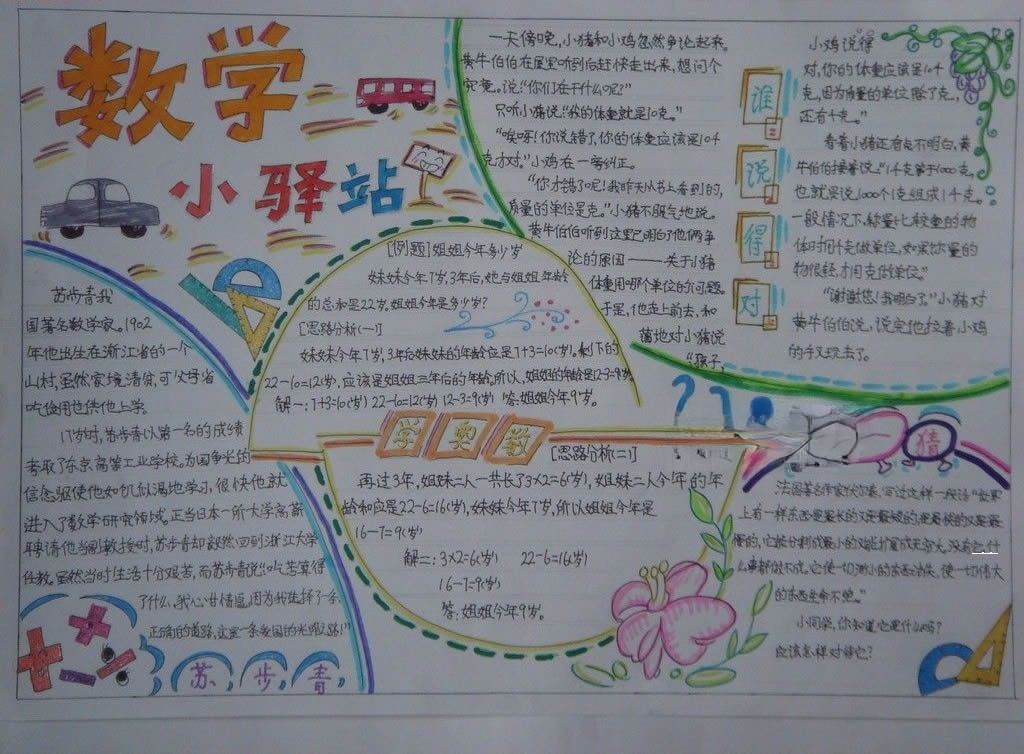 数学
小驿站
苏步青我
国著名数学家。1902
年他出生在浙江省的一个
山村,虽然家境清贫,可父母省
吃俭用也供他上学。
17岁时,苏步青以第一名的成绩
考取了东京高等工业学校。为国争光的
信念驱使他如饥似渴地学习,很快他就
进入了数学研究领域。正当日本一所大学高薪
聘请他当副教授时,苏步青却毅然回到浙江大学
任教。虽然当时生活十分艰苦,而苏步青说:“吃苦算得
了什么,我心甘情愿,因为我选择了一条
正确的道路,这是一条爱国的光明之路!”
苏步青
[例题]姐姐今年多少岁
妹妹今年7岁,3年后,她与姐姐年龄
的总和是22岁。姐姐今年是多少岁?
[思路分析(一)]
妹妹今年7岁,3年后妹妹的年龄应是7+3=10(岁)。剩下的
22-10=12(岁),应该是姐姐三年后的年龄。所以,姐姐的年龄是12-3=9岁。
解一:7+3=10(岁) 22-10=12(岁) 12-3=9(岁) 答:姐姐今年9岁。
学奥数
[思路分析(二)]
再过3年,姐妹二人一共长了3×2=6(岁),姐妹二人今年的年
龄和应是22-6=16(岁),妹妹今年7岁,所以姐姐今年是
16-7=9(岁)
解二:3×2=6(岁) 22-6=16(岁)
16-7=9(岁)
答:姐姐今年9岁。
一天傍晚,小猪和小鸡忽然争论起来。
黄牛伯伯在屋里听到后赶快走出来,想问个
究竟。说:“你们在干什么呢?”
只听小猪说:“我的体重就是10克。”
“唉呀!你说错了,你的体重应该是10千
克才对。”小鸡在一旁纠正。
“你才错了呢!我昨天从书上看到的,
质量的单位是克。”小猪不服气地说。
黄牛伯伯听到这里已明白了他俩争
论的原因——关于小猪
体重用哪个单位的问题。
于是,他走上前去,和
蔼地对小猪说
“孩子,
谁说得对
小鸡说得
对,你的体重应该是10千
克,因为质量的单位除了克,
还有千克。”
看着小猪还有点不明白,黄
牛伯伯接着说:“1千克等于1000克,
也就是说1000个1克组成1千克。
一般情况下,称量比较重的物
体时用千克做单位,如果称量的
物很轻,才用克做单位。”
“谢谢您!我明白了。”小猪对
黄牛伯伯说,说完他拉着小鸡
的手又玩去了。
猜
法国著名作家伏尔泰,写过这样一段话:“世界
上有一样东西是最长的又是最短的,是最快的又是最
慢的,它能分割成最小的又能扩宽成无穷大。没有它,什
么事都做不成。它使一切渺小的东西消失,使一切伟大
的东西生命不绝。”
小同学,你知道它是什么吗?
应该怎样对待它?